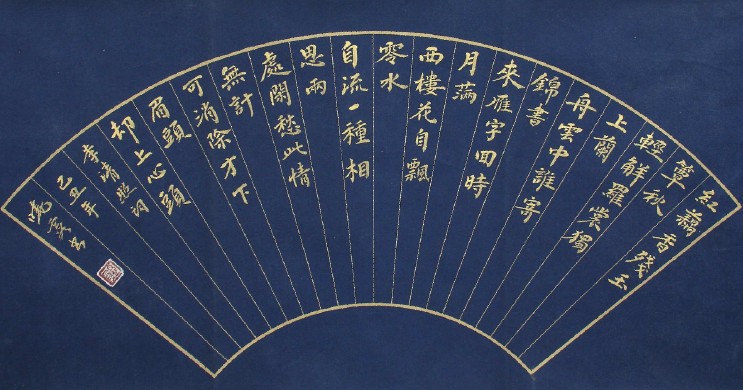 紅藕香殘玉
簟秋
輕解羅裳獨
上蘭
舟雲中誰寄
錦書
來雁字回時
月滿
西樓花自飄
零水
自流一種相
思兩
處閑愁此情
無計
可消除才下
眉頭
却上心頭
李清照詞
己丑年